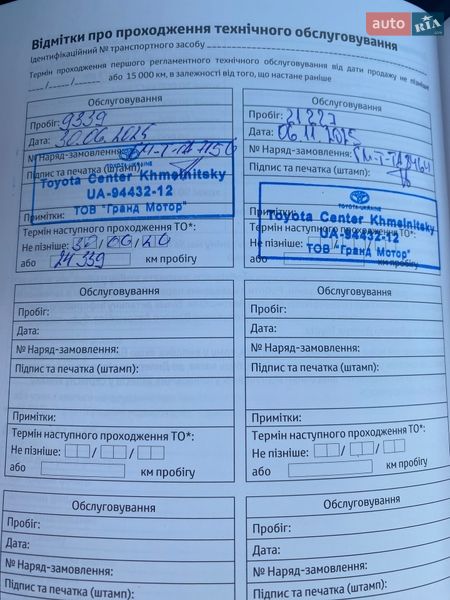 auto RIA.com
Відмітки про проходження технічного обслуговування
Ідентифікаційний № транспортного засобу
Термін проходження першого регламентного технічного обслуговування від дати продажу не пізніше
__/__/__ або 15 000 км, в залежності від того, що настане раніше
Обслуговування
Пробіг: 9339
Дата: 30.06.2025
№ Наряд-замовлення:
Підпис та печатка (штамп):
TOYOTA-UKRAINE
Toyota Center Khmelnitsky
UA-94432-12
ТОВ "Гранд Мотор"
Примітки:
Термін наступного проходження ТО*:
Не пізніше: 30/06/26
або 24339 км пробігу
Обслуговування
Пробіг: 21227
Дата: 06.11.2025
№ Наряд-замовлення:
Підпис та печатка (штамп):
TOYOTA-UKRAINE
Toyota Center Khmelnitsky
UA-94432-12
ТОВ "Гранд Мотор"
Примітки:
Термін наступного проходження ТО*:
Не пізніше:
або км пробігу
Обслуговування
Пробіг:
Дата:
№ Наряд-замовлення:
Підпис та печатка (штамп):
Примітки:
Термін наступного проходження ТО*:
Не пізніше: / /
або км пробігу
Обслуговування
Пробіг:
Дата:
№ Наряд-замовлення:
Підпис та печатка (штамп):
Примітки:
Термін наступного проходження ТО*:
Не пізніше: / /
або км пробігу
Обслуговування
Пробіг:
Дата:
№ Наряд-замовлення:
Підпис та печатка (штамп):
Обслуговування
Пробіг:
Дата:
№ Наряд-замовлення:
Підпис та печатка (штамп):